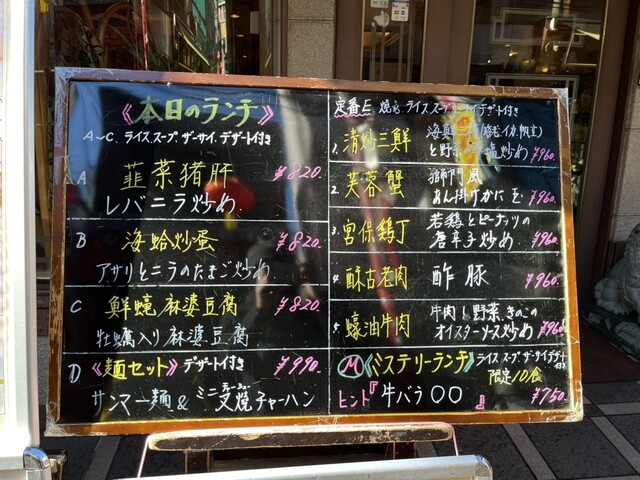 《本日のランチ》
A〜C.ライス、スープ、ザーサイ、デザート付き
A 韮菜猪肝 ¥820.
レバニラ炒め
B 海蛤炒蛋 ¥820.
アサリとニラのたまご炒め
C 鮮蠔麻婆豆腐 ¥820.
牡蠣入り麻婆豆腐
D 《麺セット》デザート付き ¥990.
サンマー麺&ミニ叉焼チャーハン
定番E. ライス.スープ.ザーサイ.デザート付き
1. 清炒三鮮
と野菜の塩炒め ¥960.
2. 芙蓉蟹
あん掛けかに玉 ¥960.
3. 宮保鶏丁 若鶏とピーナッツの
唐辛子炒め ¥960.
4. 酥古老肉 酢豚 ¥960.
5. 蠔油牛肉 牛肉と野菜、きのこの
オイスターソース炒め ¥960
Ⓜ《ミステリーランチ》ライス スープ ザーサイ デザート付き
限定10食
ヒント『牛バラ〇〇』 ¥750.